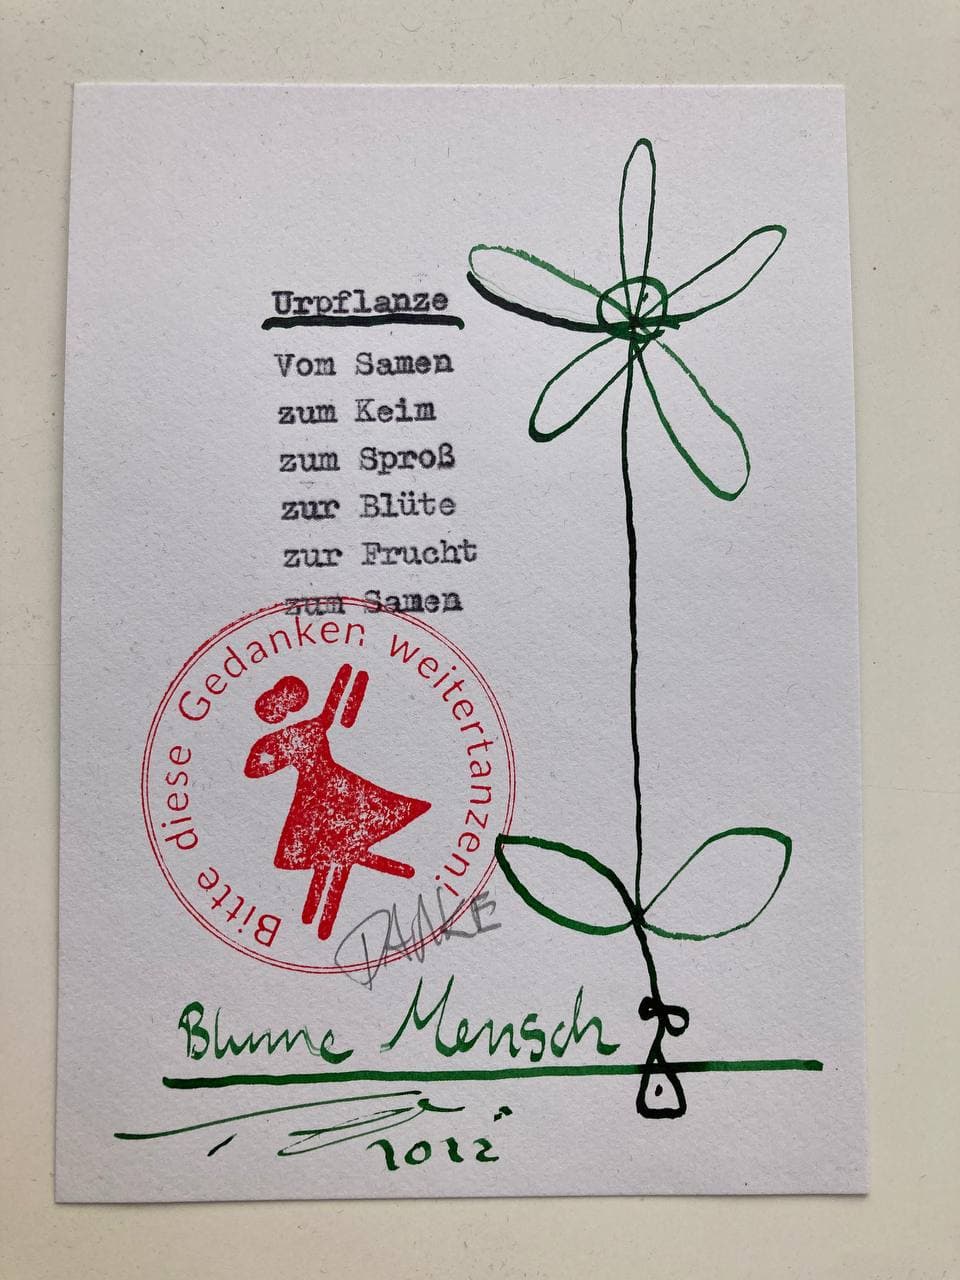 Urpflanze
Vom Samen
zum Keim
zum Sproß
zur Blüte
zur Frucht
zum Samen
Bitte diese Gedanken weitertanzen!
DANKE
Blume Mensch
2022